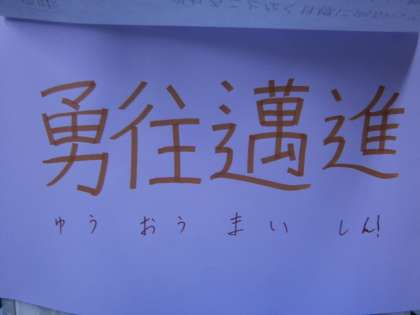 勇往邁進
ゆう おう まい しん!